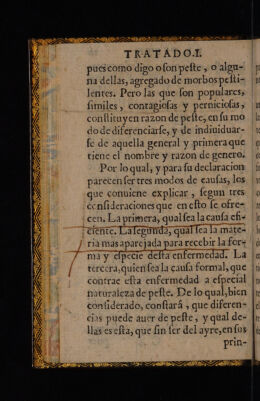 TRATADO.I.
pues como digo o son peste, o algu-
na dellas, agregado de morbos pesti-
lentes. Pero las que son populares,
similes, contagiosas y perniciosas,
constituyen razon de peste, en su mo
do de diferenciarse, y de indiuiduar-
se de aquella general y primera que
tiene el nombre y razon de genero.
Por lo qual, y para su declaracion
parecen ser tres modos de causas, los
que conuiene explicar, segun tres
consideraciones que en esto se ofre-
cen. La primera, qual sea la causa efi-
ciente. La segunda, qual sea la mate-
ria mas aparejada para recebir la for-
ma y especie desta enfermedad. La
tercera, quien sea la causa formal, que
contrae esta enfermedad a especial
naturaleza de peste. De lo qual, bien
considerado, constará, que diferen-
cias puede auer de peste, y qual de-
llas es esta, que sin ser del ayre, en sus
prin-